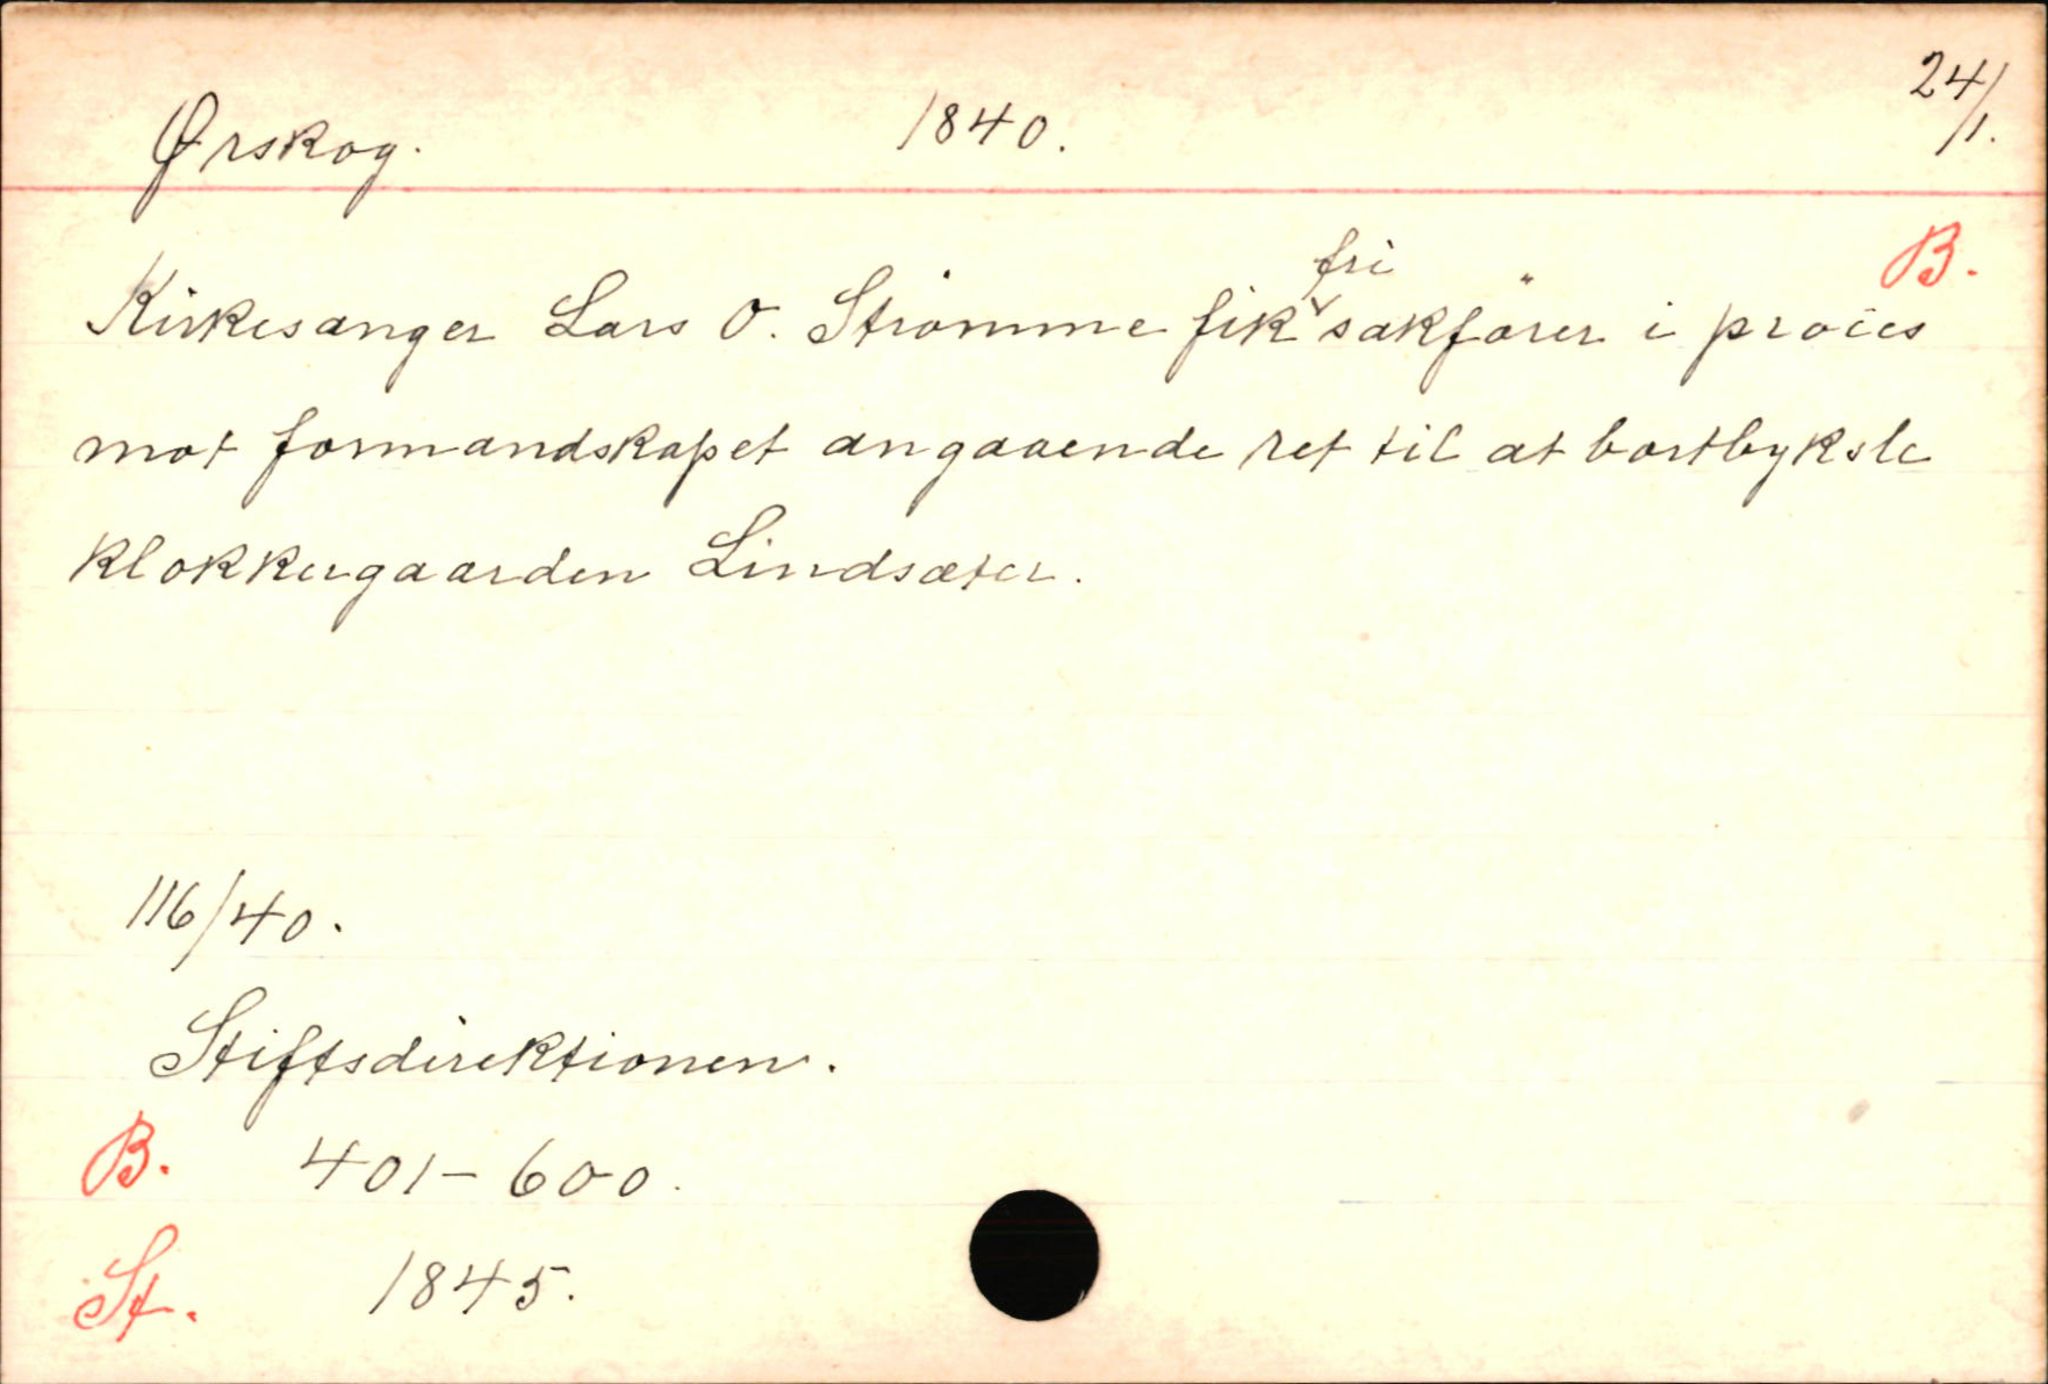 Ørskog. 1840. 24/1.
B.
Kirkesanger Lars O. Strømme fik fri sakfører i proces
mot formandskapet angaaende ret til at bortbyksle
klokkergaarden Lindsæter.
116/40.
Stiftsdirektionen.
B. 401-600.
St. 1845.